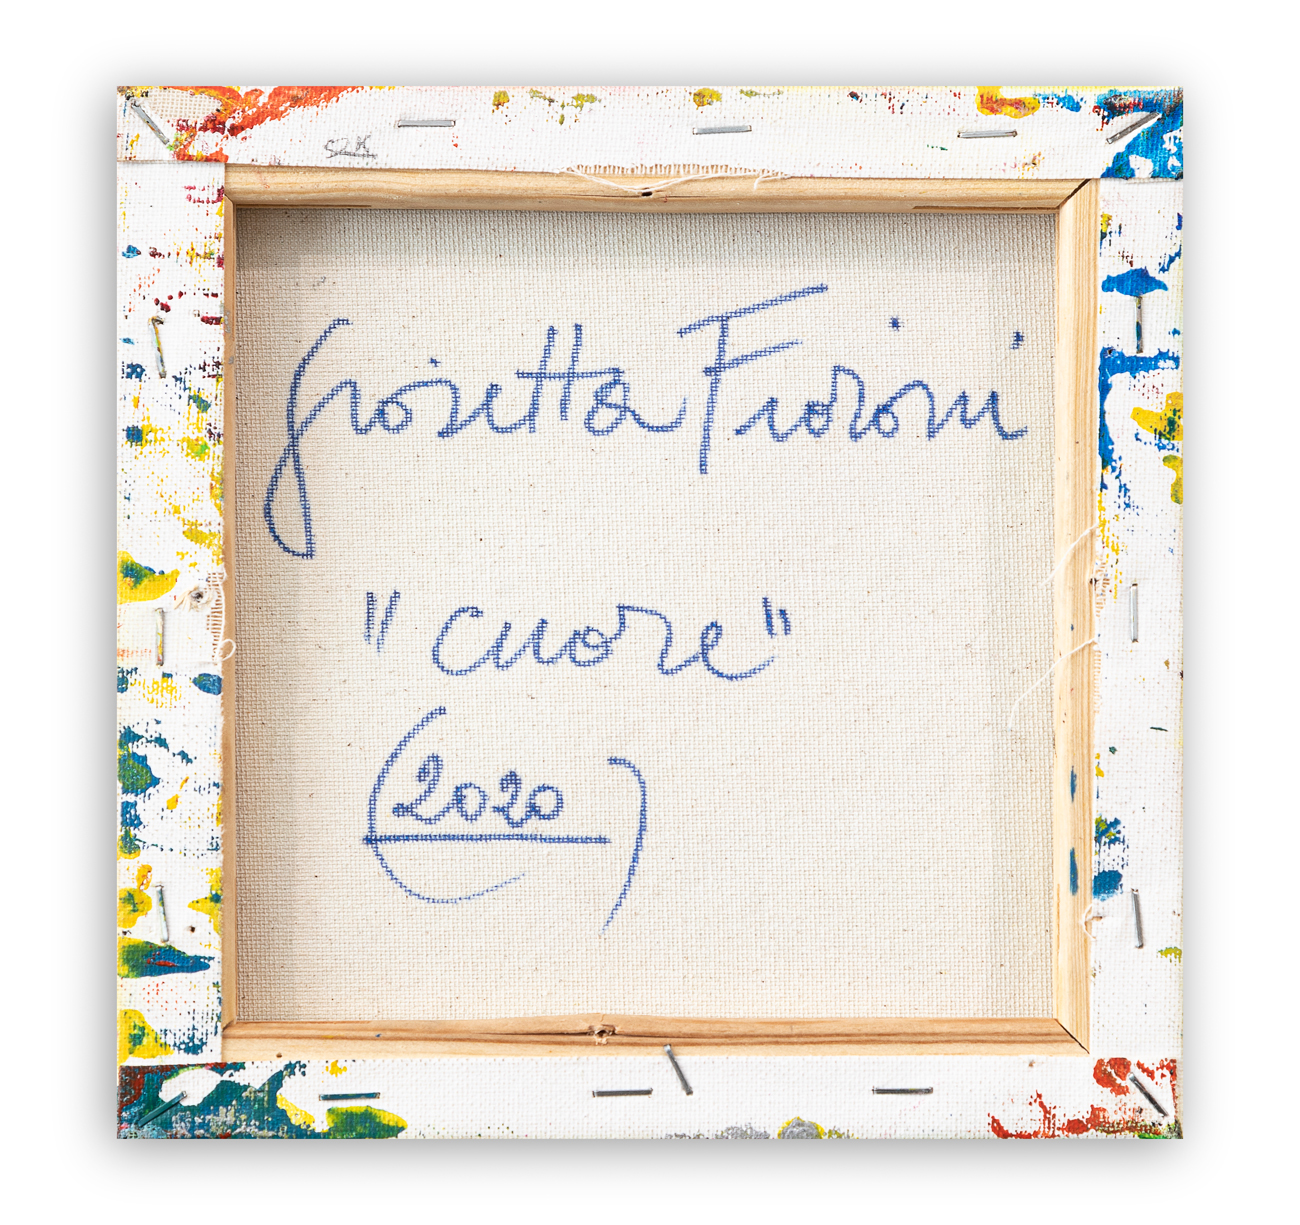 S2K
Giosetta Fioroni
"cuore"
(2020)